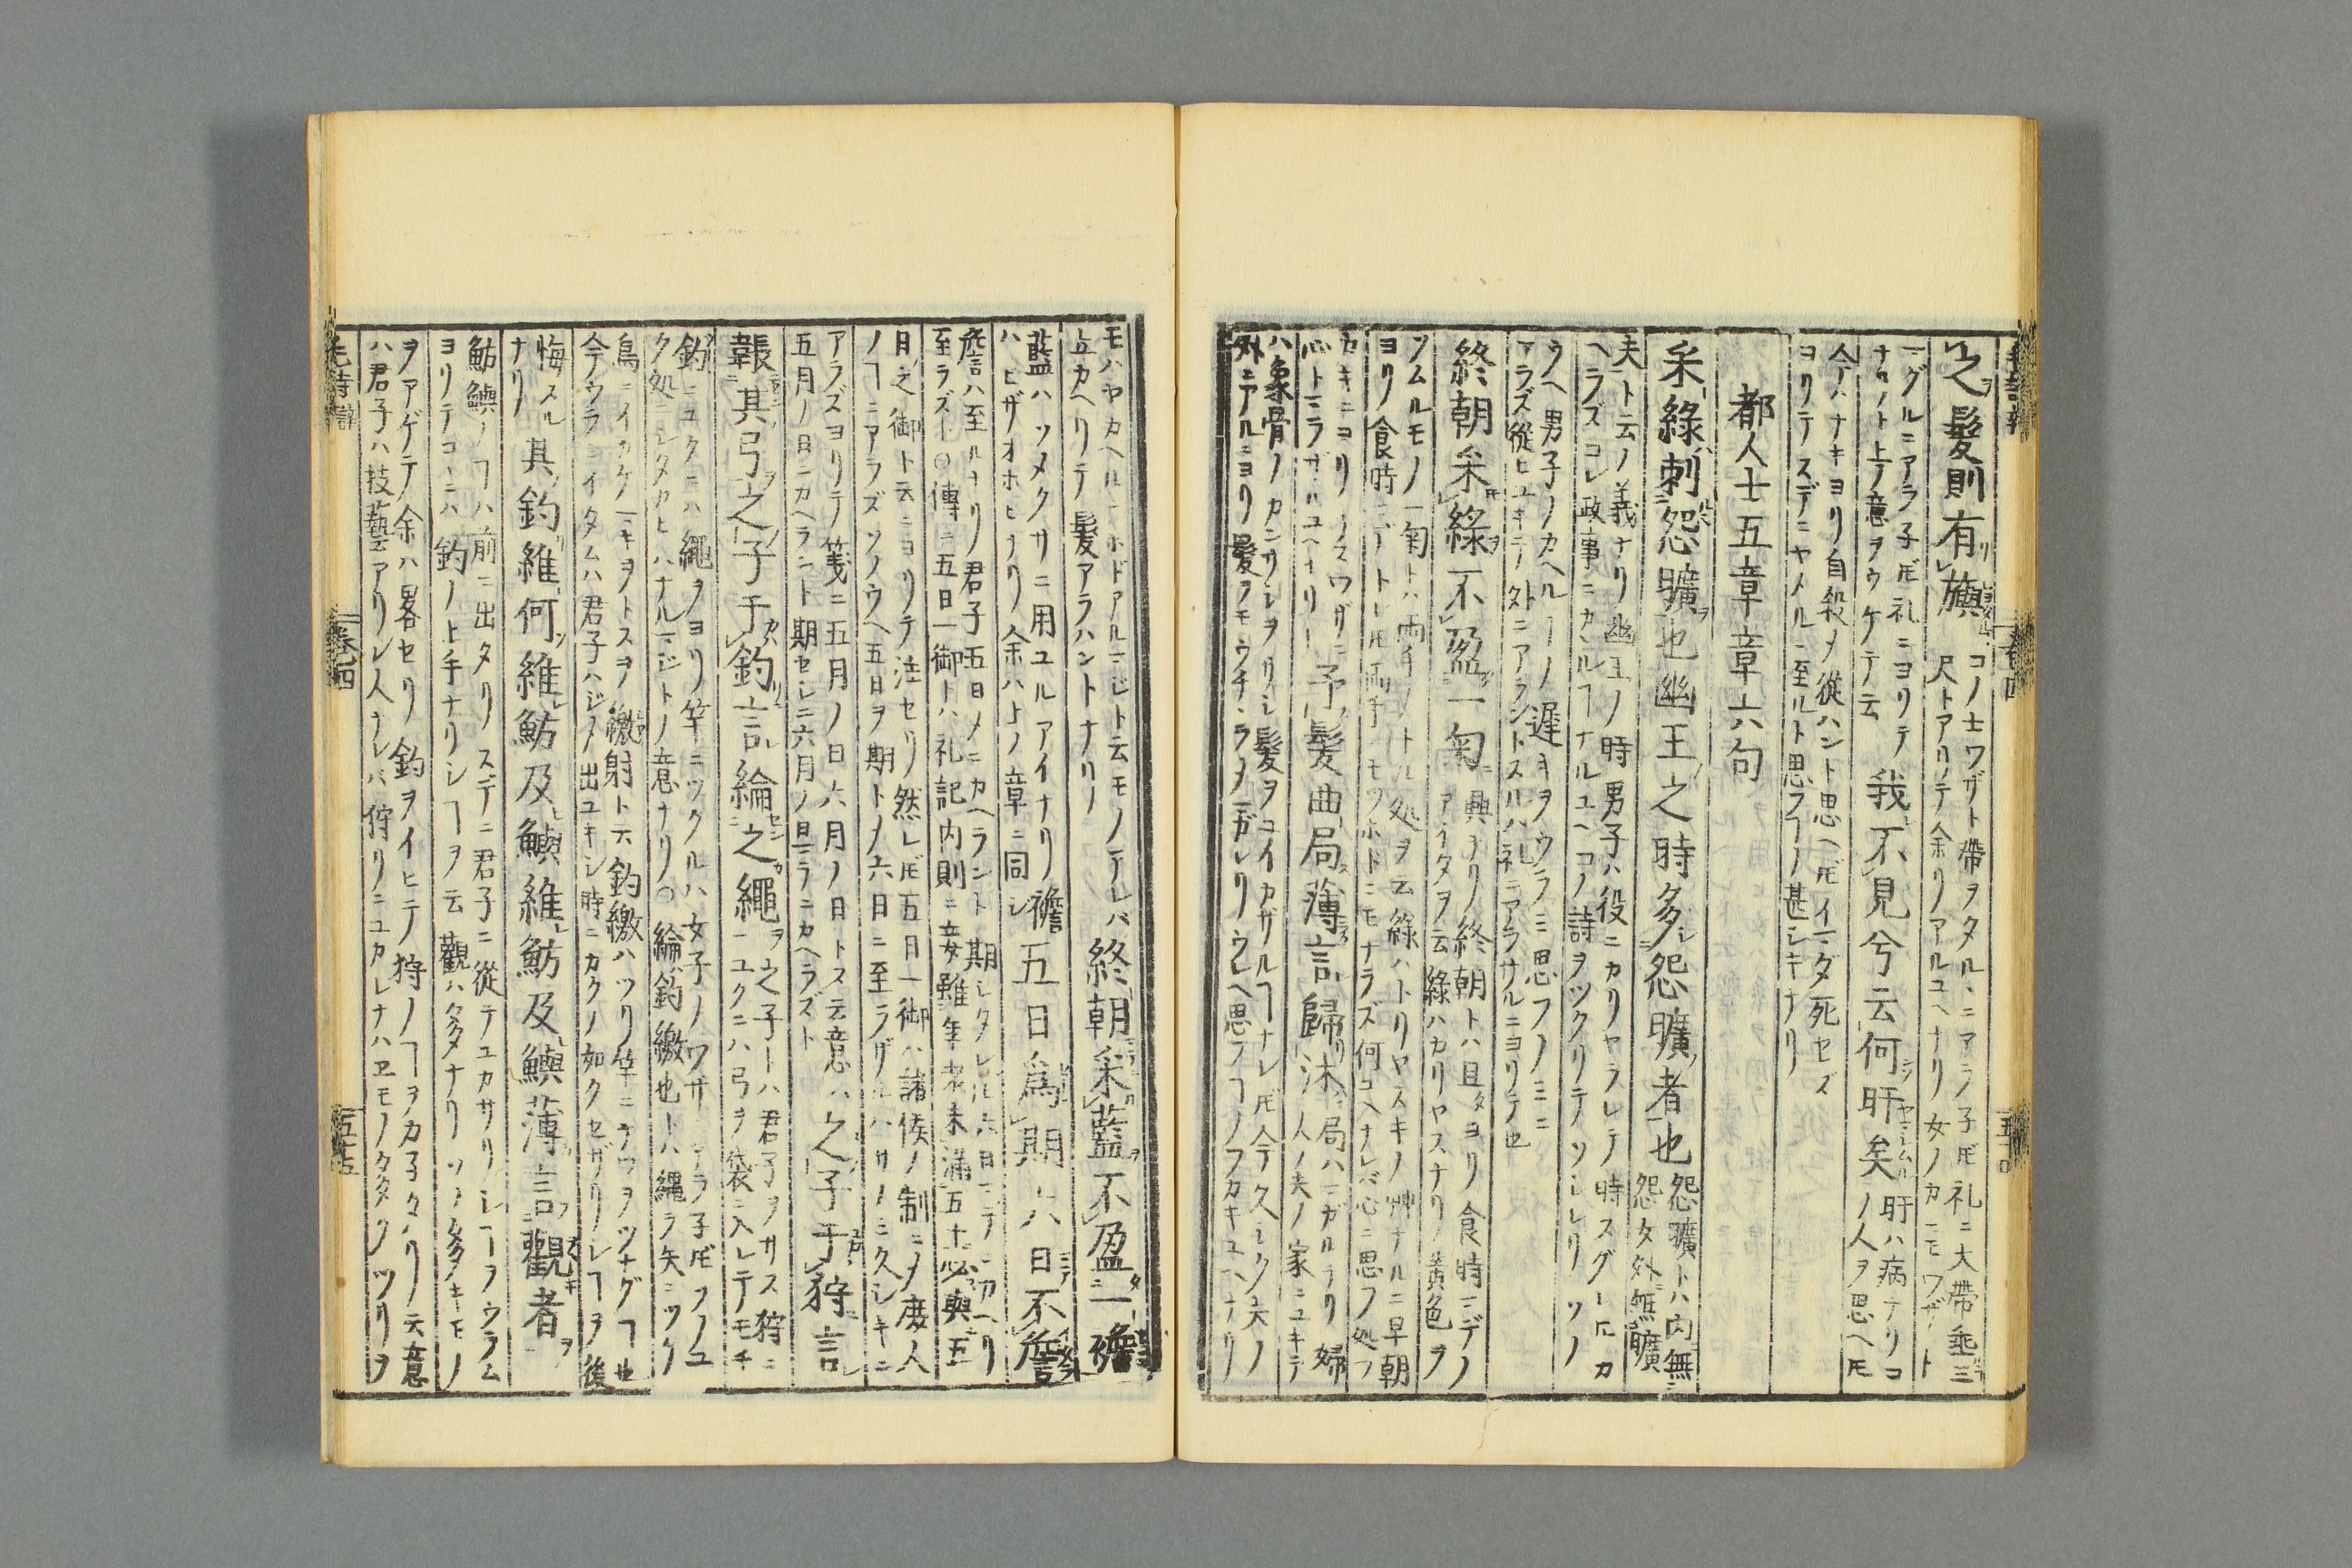 之髮則有旟 コノ士ワザト帶ヲタルヽニアラ子𪜈礼ニ大帶垂三
尺トアリテ余リアルユヘナリ女ノカミモワザト
マグルニアラ子𪜈礼ニヨリテ
ナリト上ノ意ヲウケテ云 我不見兮云何盱矣 盱ハ病ナリコ
ノ人ヲ思ヘ𪜈
今ハナキヨリ自殺メ從ハント思ヘ𪜈イマダ死セズ
ヨリテスデニヤメルニ至ルト思フヿノ甚シキナリ
都人士五章章六句
采綠刺怨曠也幽王之時多怨曠者也 怨曠トハ内無
怨女外無曠
夫ト云ノ義ナリ幽王ノ時男子ハ役ニカリヤラレテ時スグレ𪜈カ
ヘラズコレ政事ニカヽルヿナルユヘコノ詩ヲツクリテソシレリソノ
ウヘ男子ノカヘルヿノ遲キヲウラミ思フノミニ
アラズ從ヒユキテ外ニアラントスルハ礼ニアラサルニヨリテ也
終朝采綠不盈一匊 興ナリ終朝トハ旦ヨリ食時マデノ
アイタヲ云綠ハカリヤスナリ黃色ヲ
ソムルモノ一匊トハ両手ノトル処ヲ云綠ハトリヤスキノ艸ナルニ早朝
ヨリ食時マデトレ𪜈両手ニモツホトニモナラズ何ユヘナレバ心ニ思フ処フ
カキニヨリノスワザニ
心トマラザルユヘナリ 予髮曲局薄言歸沐 局ハマガルナリ婦
人ノ夫ノ家ニユキテ
ハ象骨ノカンザシヲサシ髮ヲユイカザルヿナレ𪜈今ヲクシク夫ノ
外ニアルニヨリ髮ヲモウチヽラシマガレリウレヘ思フヿノフカキユヘナリ
モハヤカヘルホドアルマジト云モノナレバ
立カヘリテ髮アラハントナリ 終朝采藍不盈一襜
藍ハソメクサニ用ユルアイナリ襜
ハヒザオホヒナリ余ハ上ノ章ニ同シ 五日爲期六日不詹
詹ハ至ルナリ君子五日メニカヘラント期シタレ𪜈六日マデニ切ヘリ
至ラズト○傳ニ五日一御トハ礼記内則ニ妾雖年老未滿五十必與五
日之御ト云ニヨリテ注セリ然レ𪜈五日一御ハ諸侯ノ制ニメ庶人
ノヿニアラズソノウヘ五日ヲ期トメ六日ニ至ラザルハサノミ久シキニ
アラズヨリテ箋ニ五月ノ日六月ノ日トス云意ハ
五月ノ日ニカヘラント期セシニ六月ノ日マデニカヘラズト 之子于狩言
韔其弓之子于釣言綸之繩 之子トハ君子ヲサス狩ニ
ユクニハ弓ヲ袋ニ入レテモチ
釣ニユクニハ繩ヲヨリ竿ニツクルハ女子ノワザニアラ子𪜈ソノユ
ク処ニシタカヒハナルマジトノ意ナリ○綸釣繳也トハ繩ヲ矢ニツケ
鳥ニイカケマキヲトスヲ繳射ト云釣繳ハツリ竿ニナワヲツナグヿ也
今ウラミイタムハ君子ハジメ出ユキシ時ニカクノ如クセザリシヿヲ後
悔スル
ナリ 其釣維何維魴及鱮維魴及鱮薄言觀者
魴鱮ノヿハ前ニ出タリスデニ君子ニ從テユカサリシヿヲウラム
ヨリテコヽニハ釣ノ上手ナリシヿヲ云觀ハ多ナリソノ多キモノ
ヲアゲテ余ハ畧セリ釣ヲイヒテ狩ノヿヲカ子タリ云意
ハ君子ハ技藝アリシ人ナレバ狩リニユカレナハヱモノタタクツリヲ
毛詩辯 卷四 五十五